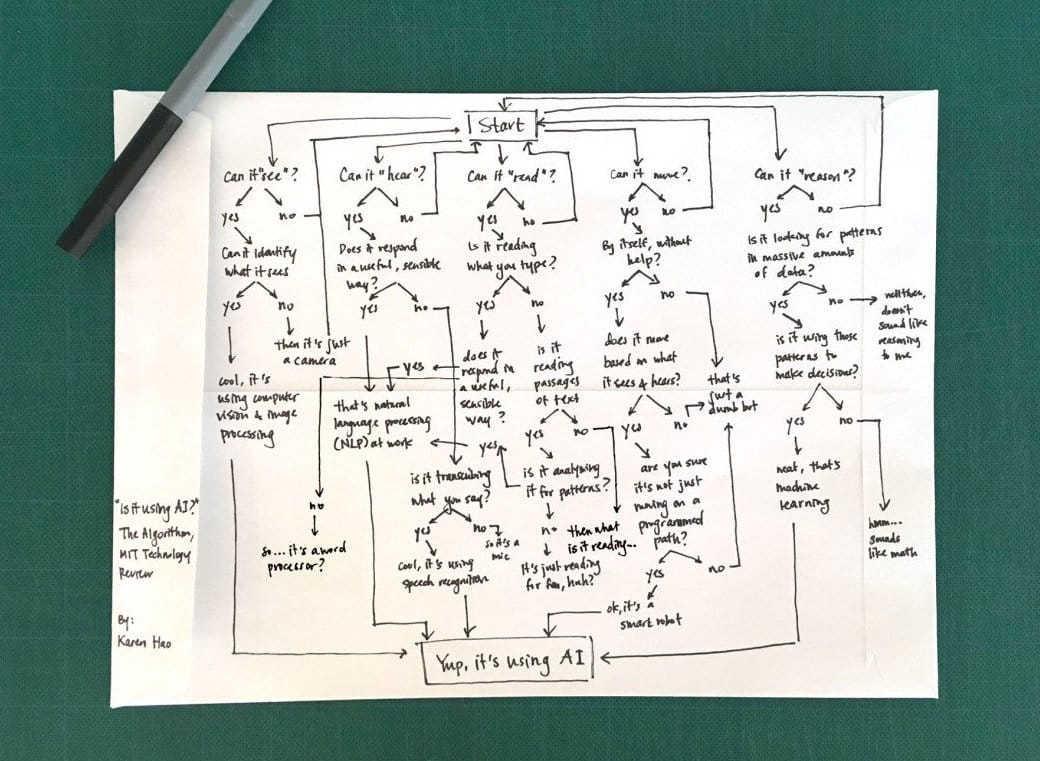 Start
Can it "see"?
yes
no
Can it identify
what it sees
yes
no
then it's just
a camera
cool, it's
using computer
vision & image
processing
Can it "hear"?
yes
no
Does it respond
in a useful, sensible
way?
yes
no
that's natural
language processing
(NLP) at work
is it transcribing
what you say?
yes
no
so it's a
mic
cool, it's using
speech recognition
Can it "read"?
yes
no
Is it reading
what you type?
yes
no
does it
respond in
a useful,
sensible
way?
yes
no
so...it's a word
processor?
is it
reading
passages
of text
yes
no
is it analyzing
it for patterns?
yes
no
It's just reading
for fun, huh?
then what
is it reading...
Can it move?
yes
no
By itself, without
help?
yes
no
that's
just a
dumb bot
does it move
based on what
it sees & hears?
yes
no
are you sure
it's not just
running on a
programmed
path?
yes
no
ok, it's a
smart robot
Can it "reason"?
yes
no
Is it looking for patterns
in massive amounts
of data?
yes
no
well then,
doesn't
sound like
reasoning
to me
is it using those
patterns to
make decisions?
yes
no
neat, that's
machine
learning
hmm...
sounds
like math
Yup, it's using AI
"Is it using AI?"
The Algorithm,
MIT Technology
Review
By:
Karen Hao